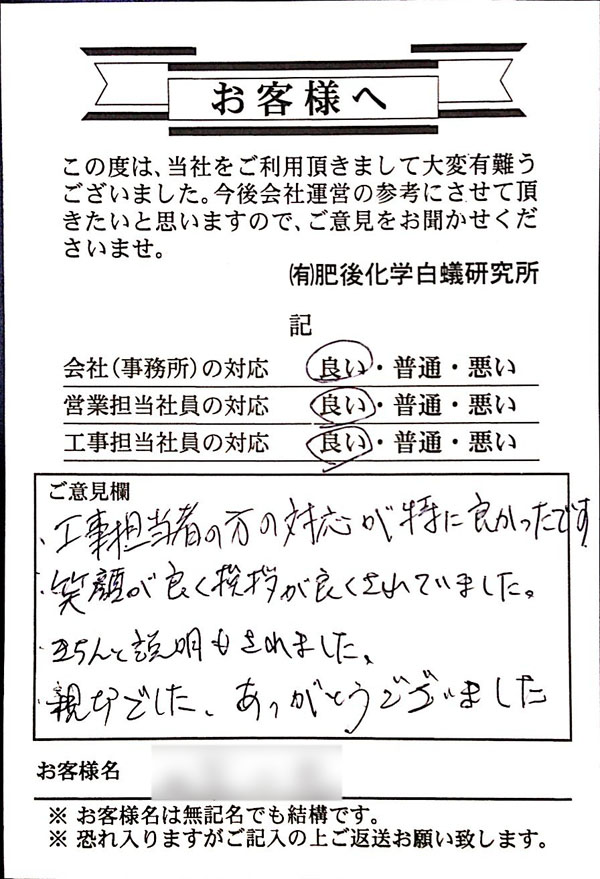 お客様へ
この度は、当社をご利用頂きまして大変有難う
ございました。今後会社運営の参考にさせて頂
きたいと思いますので、ご意見をお聞かせくだ
さいませ。
㈲肥後化学白蟻研究所
記
会社(事務所)の対応 良い・普通・悪い
営業担当社員の対応 良い・普通・悪い
工事担当社員の対応 良い・普通・悪い
ご意見欄
・工事担当者の方の対応が特に良かったです
・笑顔が良く挨拶が良くされていました。
・きちんと説明もされました。
・親切でした、ありがとうございました
お客様名
※ お客様名は無記名でも結構です。
※ 恐れ入りますがご記入の上ご返送お願い致します。